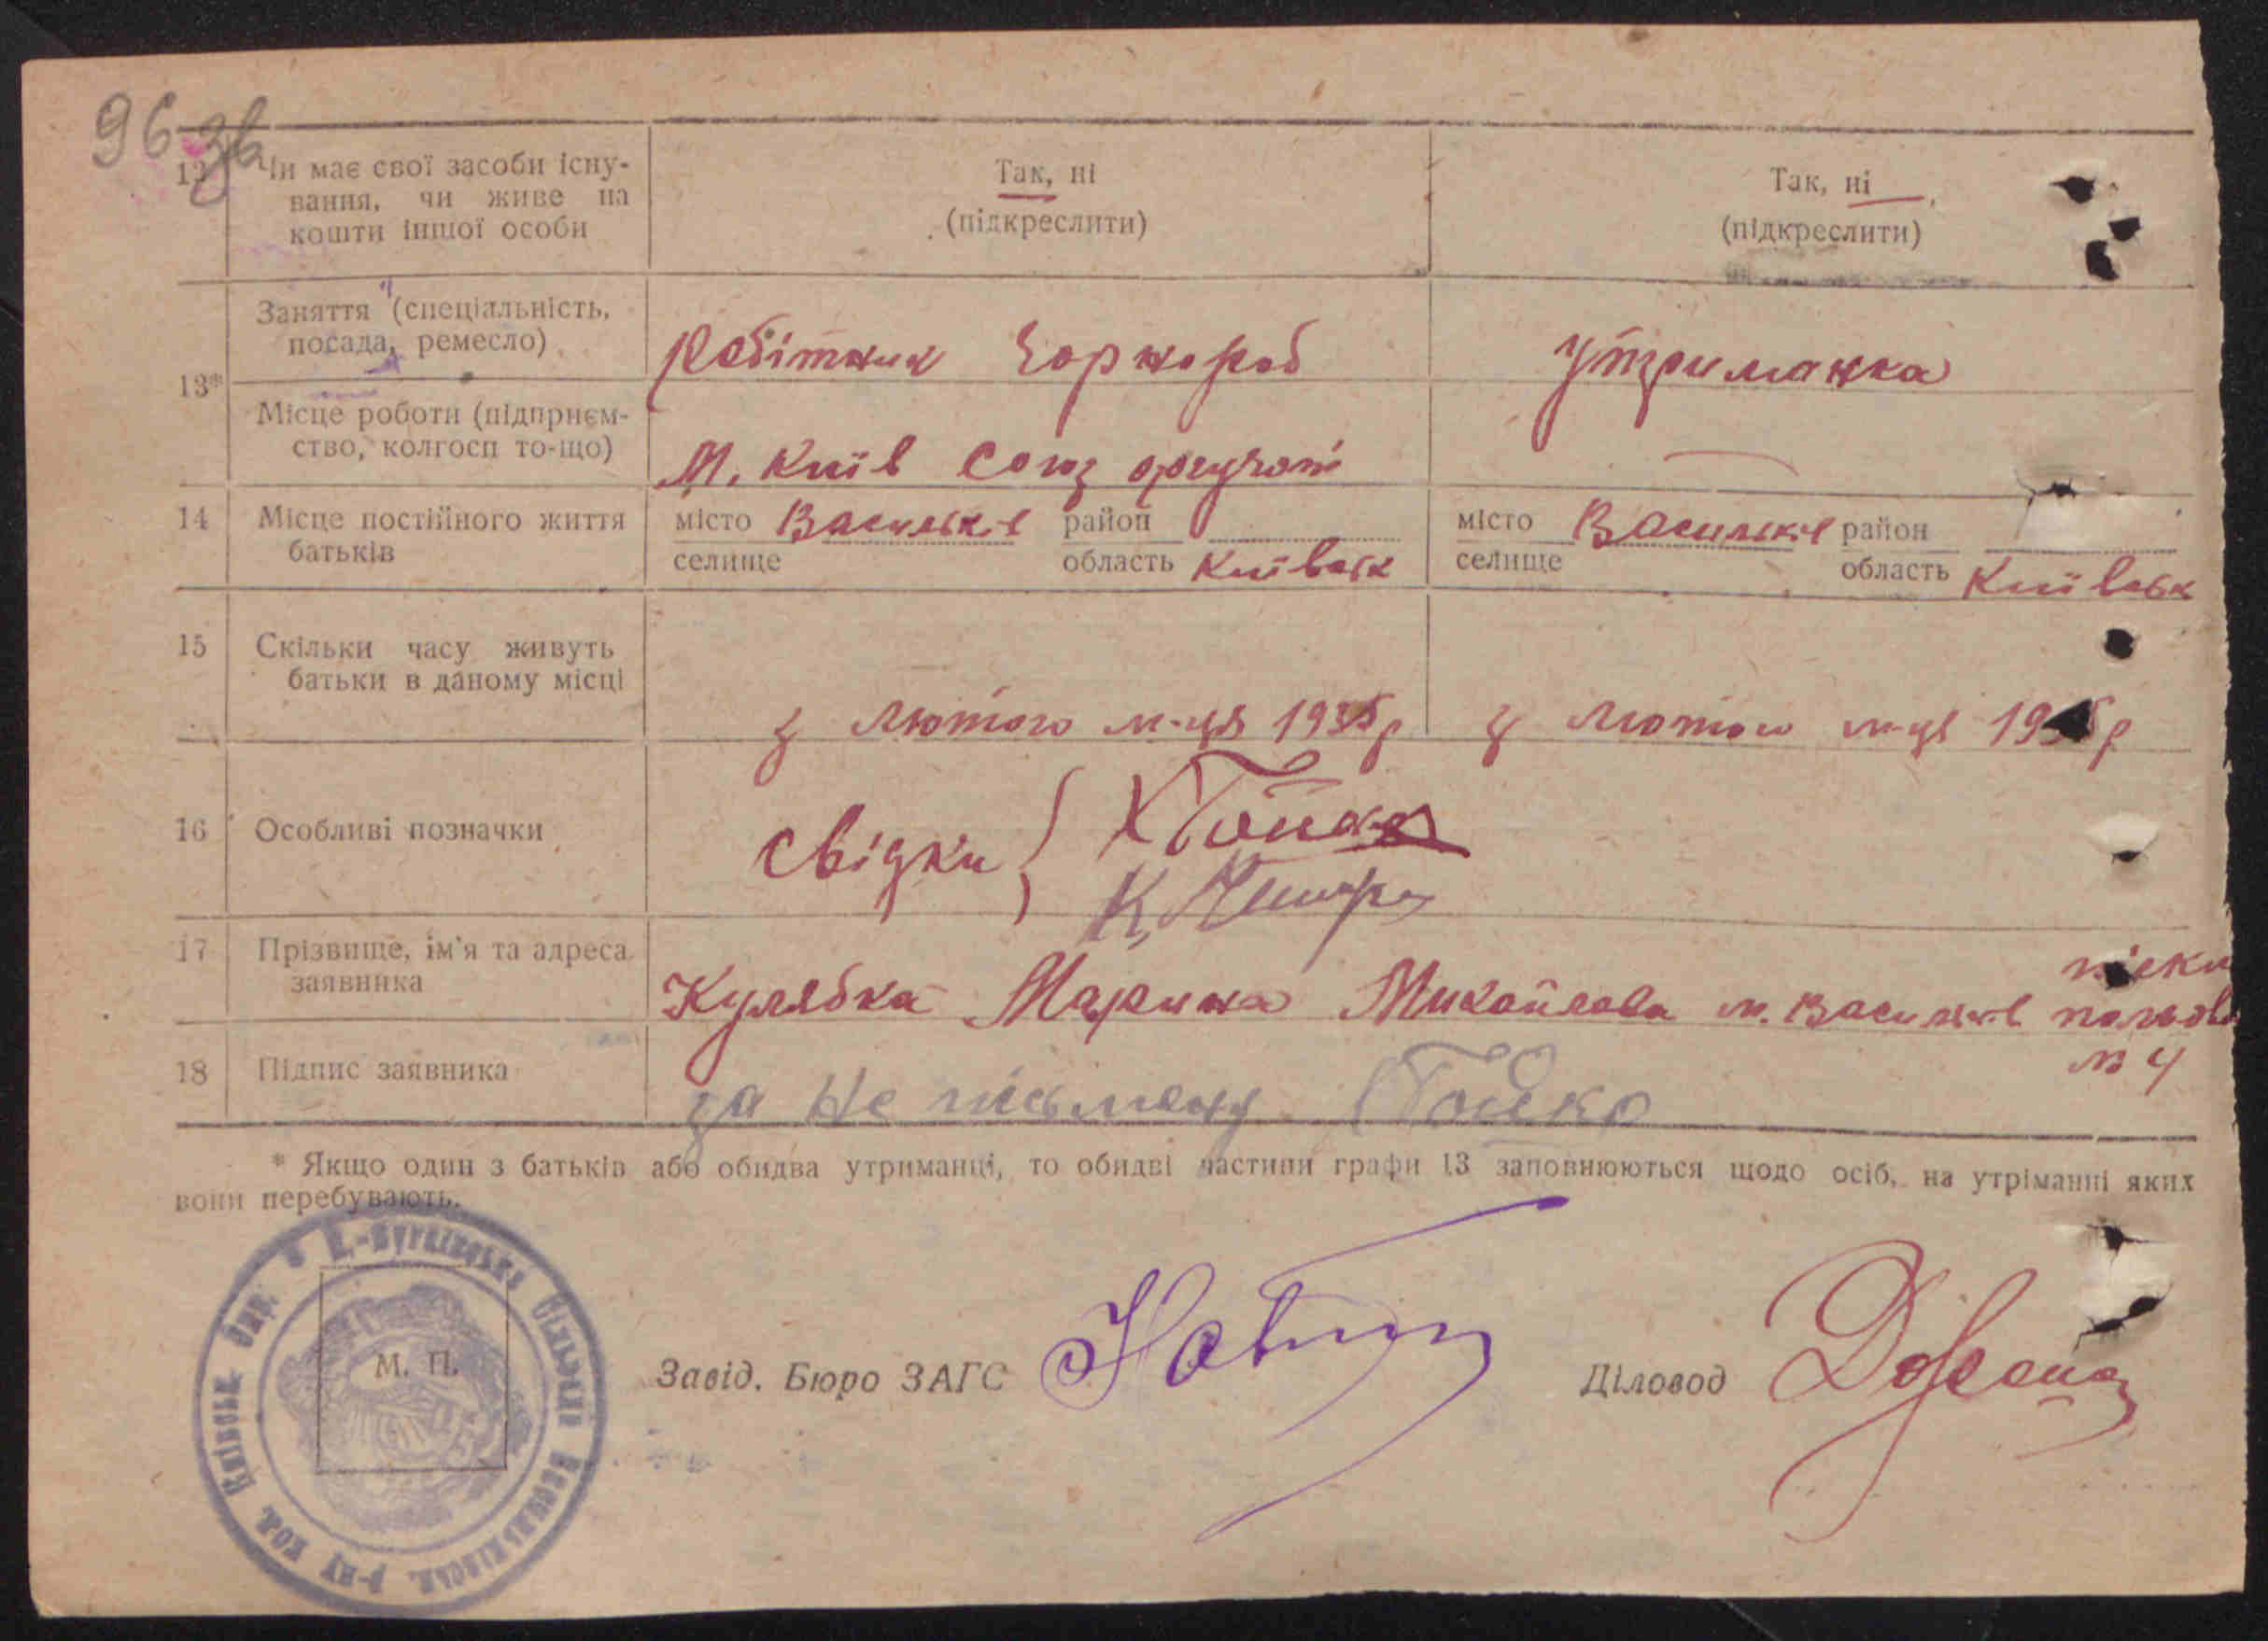 96 зв
12 Чи має свої засоби існу-
вання, чи живе на
кошти іншої особи
Так, ні
(підкреслити)
Так, ні
(підкреслити)
13*
Заняття (спеціальність,
посада, ремесло)
Робітник Чорнороб
Утриманка
Місце роботи (підпрнєм-
ство, колгосп то-що)
М. Київ Союз
14 Місце постійного життя
батьків
місто Васильків район
селище область Київськ
місто Васильків район
селище область Київськ
15 Скільки часу живуть
батьки в даному місці
з Лютого м-ця 1935 р
з Лютого м-ця 1935 р
16 Особливі позначки
Свідки Бойко
К.
17 Прізвище, ім'я та адреса
заявника
Кулябка Марина Михайлова м. Васильків
№ 4
18 Підпис заявника
за не письмену Бойко
* Якщо один з батьків або обидва утриманці, то обидві частини графи 13 заповнюються щодо осіб, на утріманні яких
вони перебувають.
М. П.
Завід. Бюро ЗАГС
Діловод